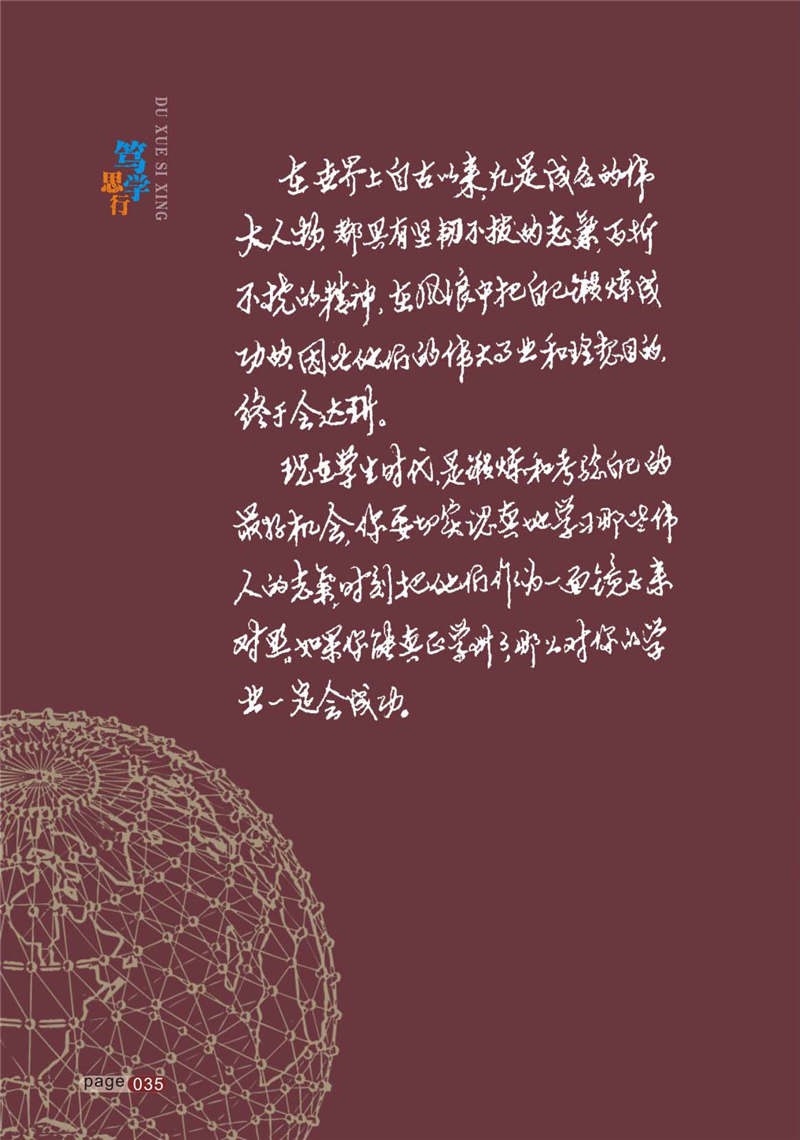 笃学
思行
DU XUE SI XING
在世界上自古以来,凡是成名的伟
大人物,都具有坚韧不拔的志气,百折
不挠的精神,在风浪中把自己锻炼成
功的,因此他们的伟大事业和理想目的,
终于会达到。
现在学生时代,是锻炼和考验自己的
最好机会,你要切实认真地学习那些伟
人的志气,时刻把他们作为一面镜子来
对照。如果你能真正学到了,那么对你的学
业一定会成功。
page 035